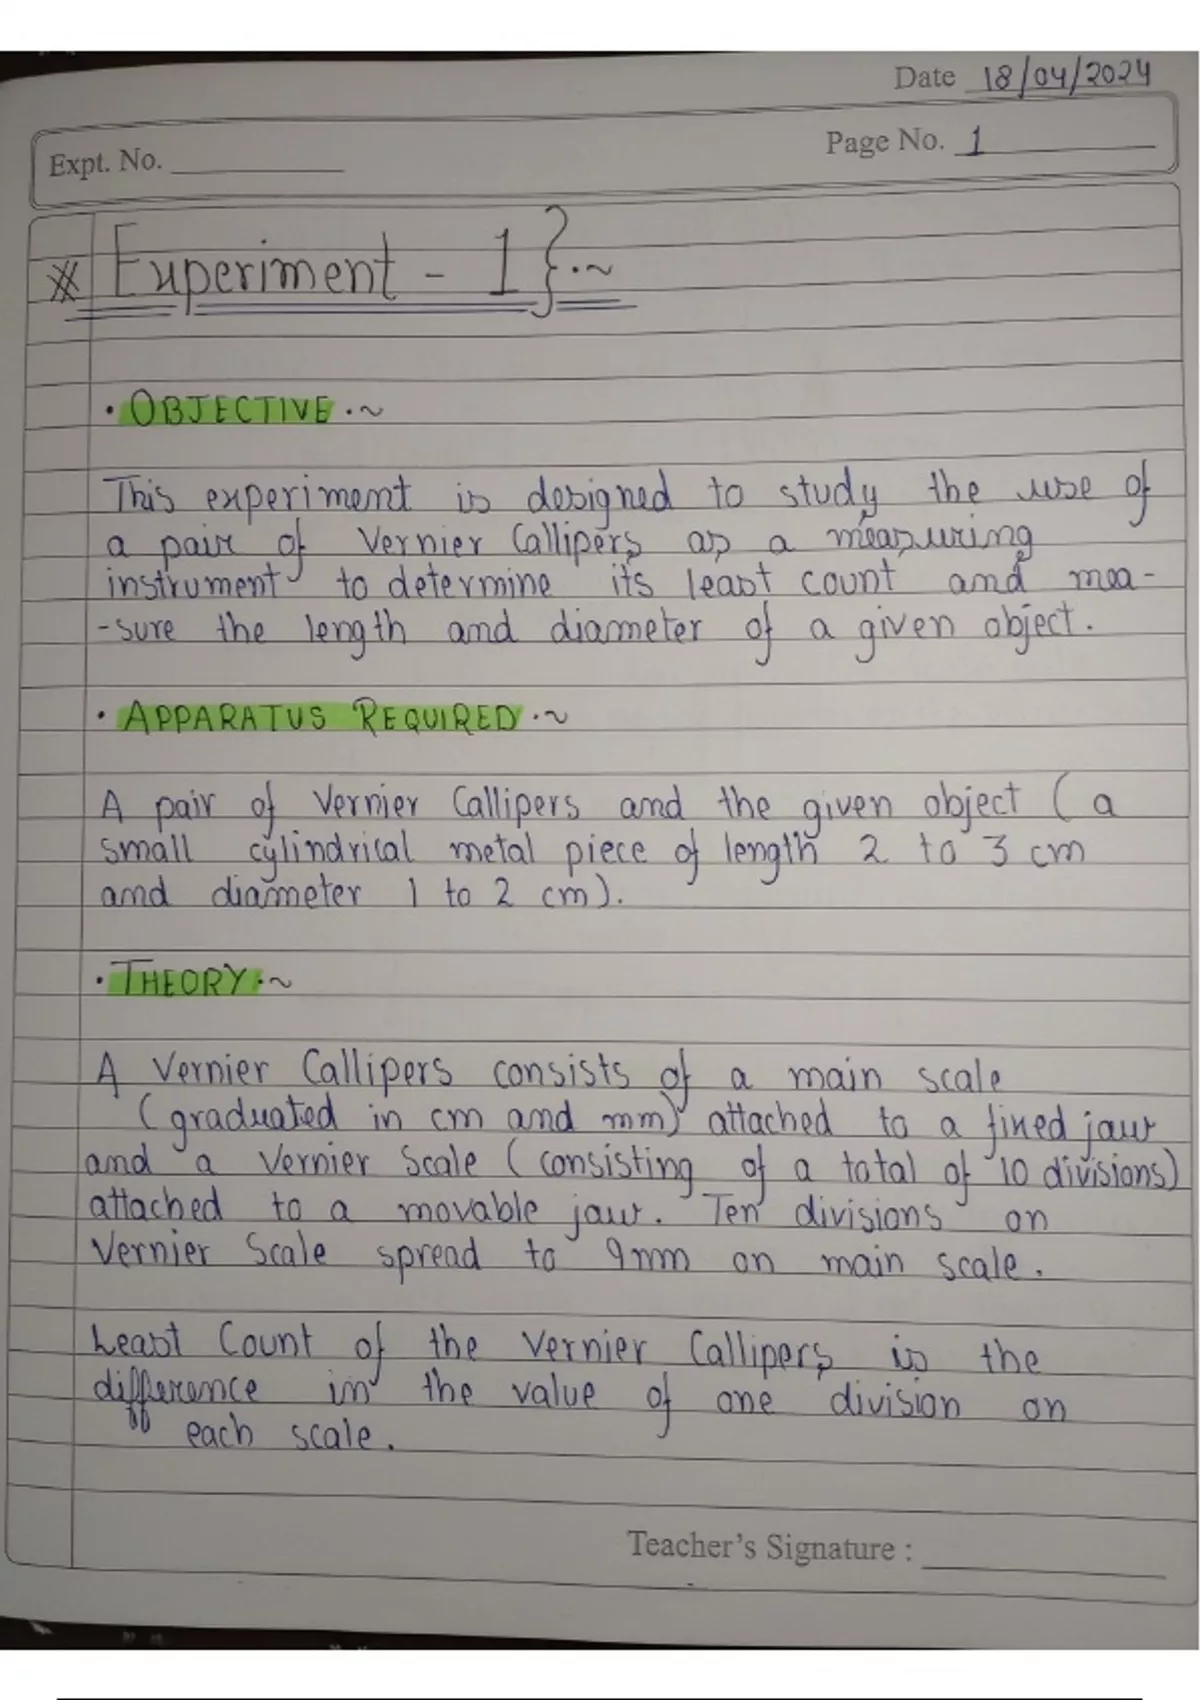 Date 18/04/2024
Expt. No.
Page No. 1
Experiment - 1}.~
• OBJECTIVE.~
This experiment is designed to study the use of
a pair of Vernier Callipers as a measuring
instrument to determine its least count and mea-
-sure the length and diameter of a given object.
• APPARATUS REQUIRED.~
A pair of Vernier Callipers and the given object (a
small cylindrical metal piece of length 2 to 3 cm
and diameter 1 to 2 cm).
• THEORY.~
A Vernier Callipers consists of a main scale
(graduated in cm and mm) attached to a fixed jaw
and a Vernier Scale (consisting of a total of 10 divisions)
attached to a movable jaw. Ten divisions on
Vernier Scale spread to 9mm on main scale.
Least Count of the Vernier Callipers is the
difference in the value of one division on
each scale.
Teacher's Signature :